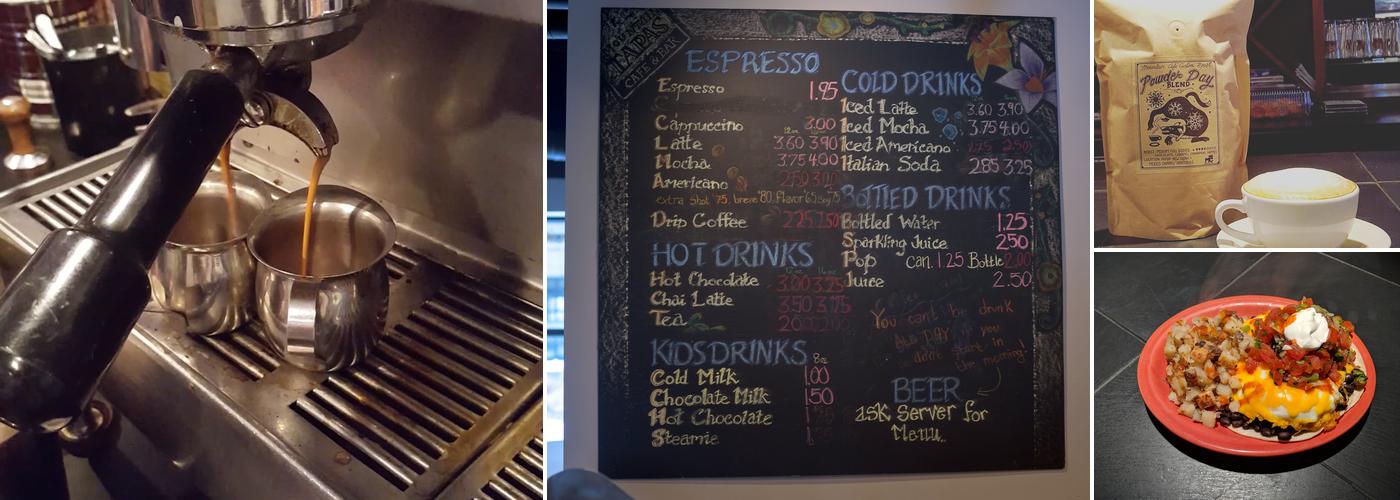 CAFE & BAR
ESPRESSO
Espresso 1.95
Cappuccino 3.00
12oz
Latte 3.60 3.90
Mocha 3.75 4.00
Americano 2.50 3.00
extra shot .75, breve .80, Flavor .65, Soy .75
Drip Coffee 2.25 2.50
HOT DRINKS
12oz 16oz
Hot Chocolate 3.00 3.25
Chai Latte 3.50 3.75
Tea 2.00
KIDS DRINKS 8oz
Cold Milk 1.00
Chocolate Milk 1.50
Hot Chocolate
Steamie
COLD DRINKS
Iced Latte 3.60 3.90
Iced Mocha 3.75 4.00
Iced Americano 2.25 2.50
Italian Soda 2.85 3.25
BOTTLED DRINKS
Bottled Water 1.25
Sparkling Juice 2.50
Pop Can 1.25 Bottle 2.00
Juice 2.50
You can't be drunk
ALL DAY if you
don't start in
the morning!
BEER
ASK Server for
Menu..
Powder Day
BLEND